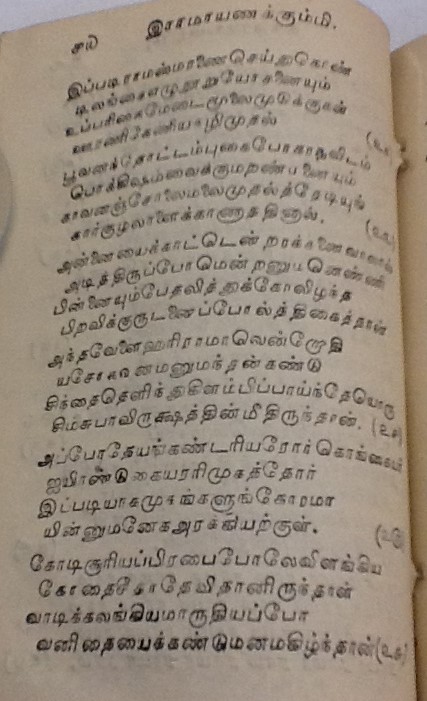 இராமாயணக்கும்மி.
இப்படிராமஸ்மரணைசெய்துகொண்
டிலங்கையெழுநூறுயோசனையும்
உப்பரிகைமேடைமூலைமுடுக்குகள்
ஊரணிகேணியகழிமுதல்
பூவனத்தோட்டம்புகைபோகாதவிடம்
பொக்கிஷம்வைக்கும் யும்
காவனஞ்சோலைமலைமுதல்த்தேடியுங்
கார்குழலாளைக்காணாததினால்.
அன்னையைக்காட்டென்
அடித்திருப்போமென்றனுமனெண்ணி
பின்னையும்பேதலித்துக்கோலிழந்த
பிறவிக்குருடனைப்போல்த்திகைத்தான்
அந்தவேளைஹரிராமாவென்றோதி
யசோகவனமனுமந்தன்கண்டு
சிந்தைதெளிந்துகிளம்பிப்பாய்ந்தேயொரு
சிம்சுபாவிருக்ஷத்தின்மீதிருந்தான். (உ௪)
அப்போதேயங்கண்டரியரோர்கொங்கையர்
ஐயிரண்டுகையரரிமுகத்தோர்
இப்படியாகமுகங்களுங்கோரமா
யின்னுமனேகஅரக்கியற்குள். (உ௫)
கோடிசூரியப்பிரபைபோலேவிளங்கிய
கோதைசீதாதேவிதானிருந்தாள்
வாடிக்கலங்கியமாருதியப்போ
வனிதையைக்கண்டுமனமகிழ்ந்தான் (உ௬)